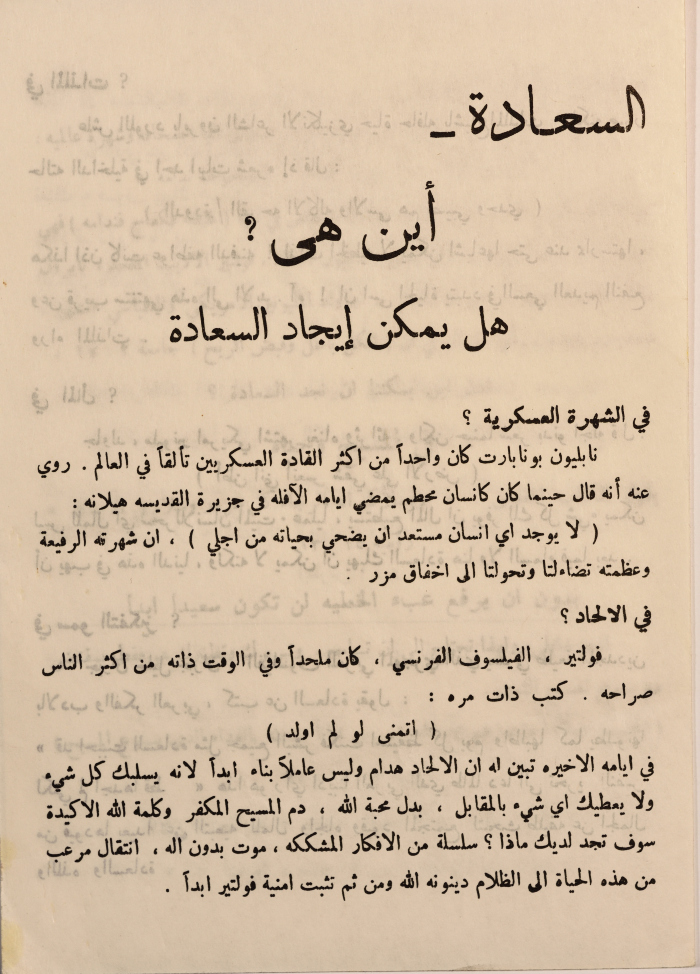 السعادة _
أين هى ؟
هل يمكن إيجاد السعادة
في الشهرة العسكرية ؟
نابليون بونابارت كان واحداً من اكثر القادة العسكريين تألقاً في العالم . روي
عنه أنه قال حينما كان كانسان محطم يمضي ايامه الآفله في جزيرة القديسه هيلانه :
( لا يوجد اي انسان مستعد ان يضحي بحياته من اجلي ) ، ان شهرته الرفيعة
وعظمته تضاءلتا وتحولتا الى اخفاق مزر .
في الالحاد ؟
فولتير ، الفيلسوف الفرنسي ، كان ملحداً وفي الوقت ذاته من اكثر الناس
صراحه . كتب ذات مره :
( اتمنى لو لم اولد )
في ايامه الاخيره تبين له ان الالحاد هدام وليس عاملاً بناء ابداً لانه يسلبك كل شيء
ولا يعطيك اي شيء بالمقابل ، بدل محبة الله ، دم المسيح المكفر وكلمة الله الاكيدة
سوف تجد لديك ماذا ؟ سلسلة من الافكار المشككه ، موت بدون اله ، انتقال مرعب
من هذه الحياة الى الظلام دينونه الله ومن ثم تثبت امنية فولتير ابداً .